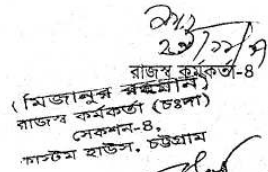 রাজস্ব কর্মকর্তা-৪
(মিজানুর রহমান)
রাজস্ব কর্মকর্তা (চঃদাঃ)
সেকশন-৪,
কাস্টম হাউস, চট্টগ্রাম